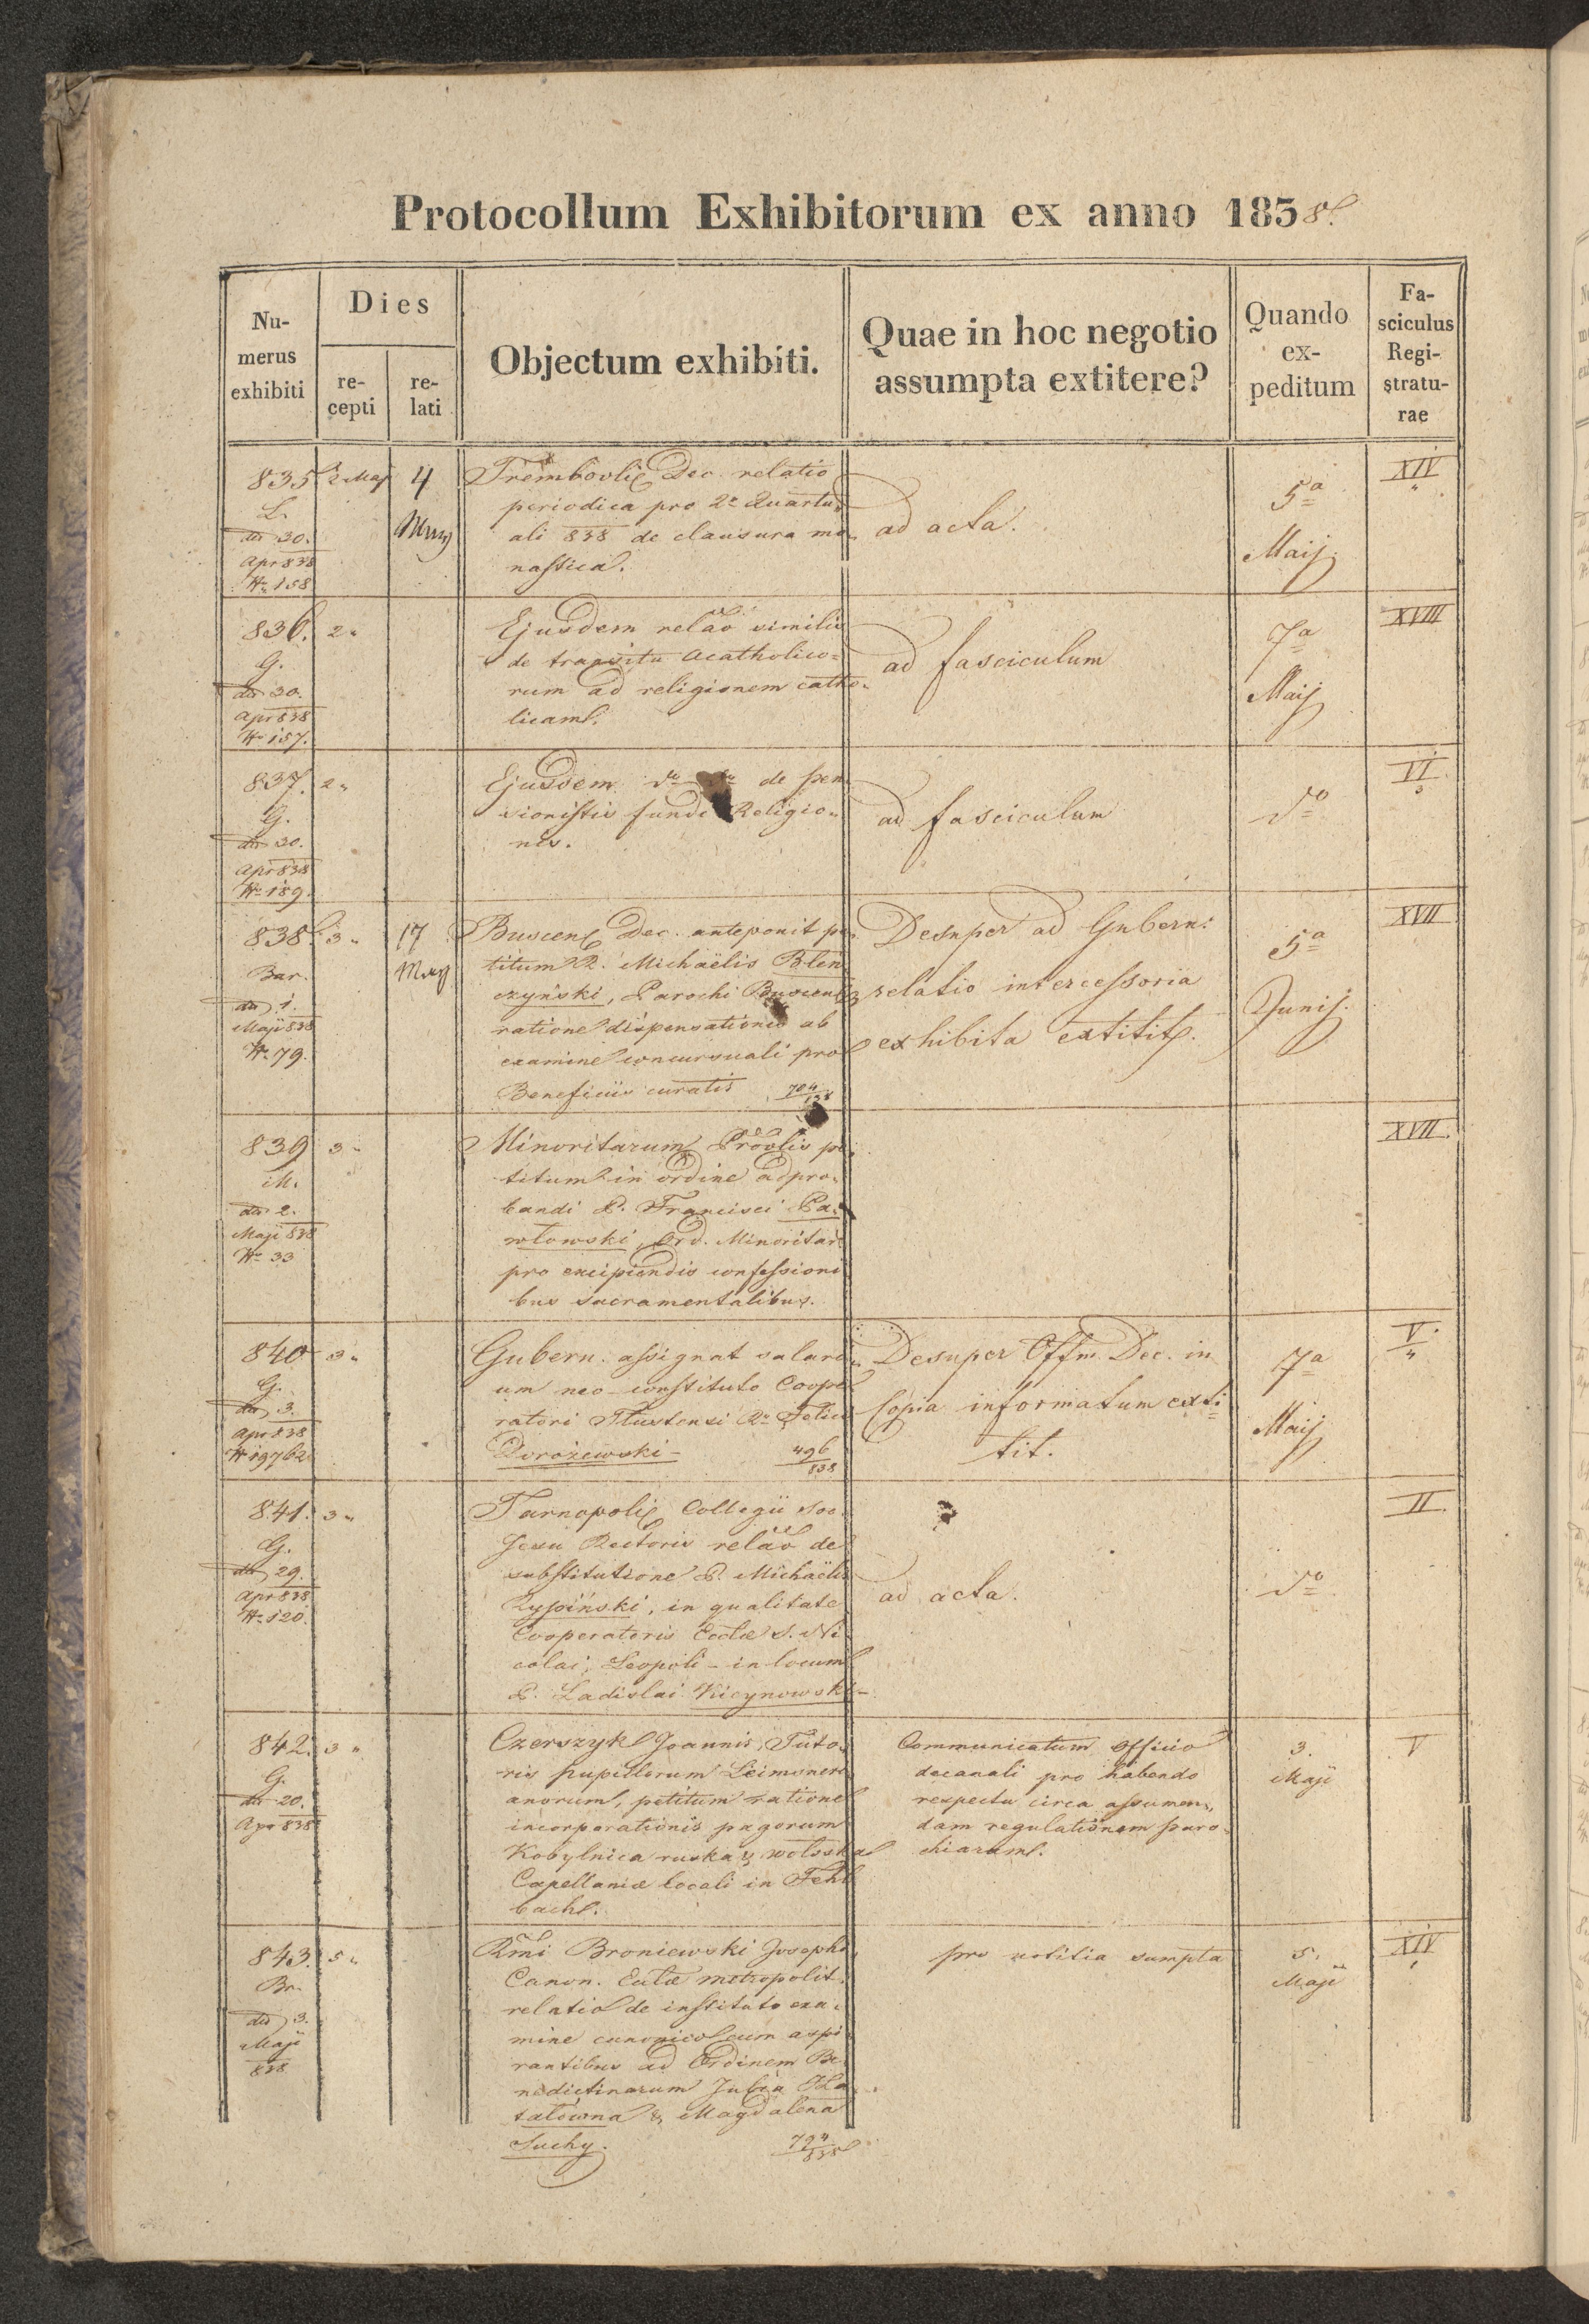 Protocollum Exhibitorum ex anno 1838.
Nu-
merus
exhibiti
Dies
re-
cepti
re-
lati
Objectum exhibiti.
Quae in hoc negotio
assumpta extitere?
Quando
ex-
peditum
Fa-
sciculus
Regi-
stratu-
rae
835 2 Maj 4
L.
dto 30.
Apr 838
No 158
May
Trembovlien Dec. relatio
periodica pro 2o Quartu„
ali 838 de clausura mo„
nastica.
ad acta.
5a
Maij.
XIV
836. 2„
G.
dto 30.
Apr 838
No 157.
Ejusdem relao similis
de transitu Acatholico=
rum ad religionem catho„
licam.
ad fasciculum
7a
Maij
XVIII
837. 2„
G.
dto 30.
Apr 838
No 189.
Ejusdem dto dto de pen„
sionistis fundi Religio„
nis.
ad fasciculum
do
VI.
838. 3„ 17
Bar.
dto 1.
Maji 838
No 79.
May
Buscen Dec. anteponit pe„
titum R. Michaëlis Blen
czyński, Parochi Buscen
ratione dispensationis ab
examine concursuali pro
Beneficiis curatis 704/838
Desuper ad Gubern:
relatio intercessoria
exhibita extitit.
5a
Junij.
XVII
839 3„
M.
dto 2.
Maji 838
No 33
Minoritarum Provlis pe„
titum in ordine adpro„
bandi P. Francisci Pa„
włowski, Ord. Minoritar.
pro excipiendis confessioni
bus sacramentalibus.
XVII.
840 3„
G.
dto 3.
Apr 838
No 19762
Gubern. assignat salari„
um neo-constituto Coope
ratori Tlustensi Ro Felici
Dorożewski- 496/838
Desuper Offm Dec. in
Copia informatum exti=
tit.
7a
Maij
V.
841. 3„
G.
dto 29.
Apr 838
No 120.
Tarnopolien Collegii Soc.
Jesu Rectoris relao de
substitutione P. Michaëlis
Rypiński, in qualitate
Cooperatoris Eccliæ S. Ni
colai, Leopoli - in locum
P. Ladislai Kicynowski-
ad acta.
do
II.
842. 3„
G.
dto 20.
Apr 838
Czerszyk Joannis, Tuto„
ris pupillorum Leimoner
anorum, petitum ratione
incorporationis pagorum
Kobylnica ruska & wołoska
Capellaniæ locali in Fehl
bach.
Communicatum Officio
decanali pro habendo
respectu circa assumen„
dam regulationem paro„
chiarum.
3.
Maji
V
843. 5„
Br.
dto 3.
Maji
838
Rmi Broniewski Josephi
Canon. Eccliæ metropolit.
relatio de instituto exa„
mine canonico cum aspi
rantibus ad Ordinem Be„
nedictinarum Julia
& Magdalena
Suchy. 794/838
pro notitia sumpta
5.
Maji
XIV